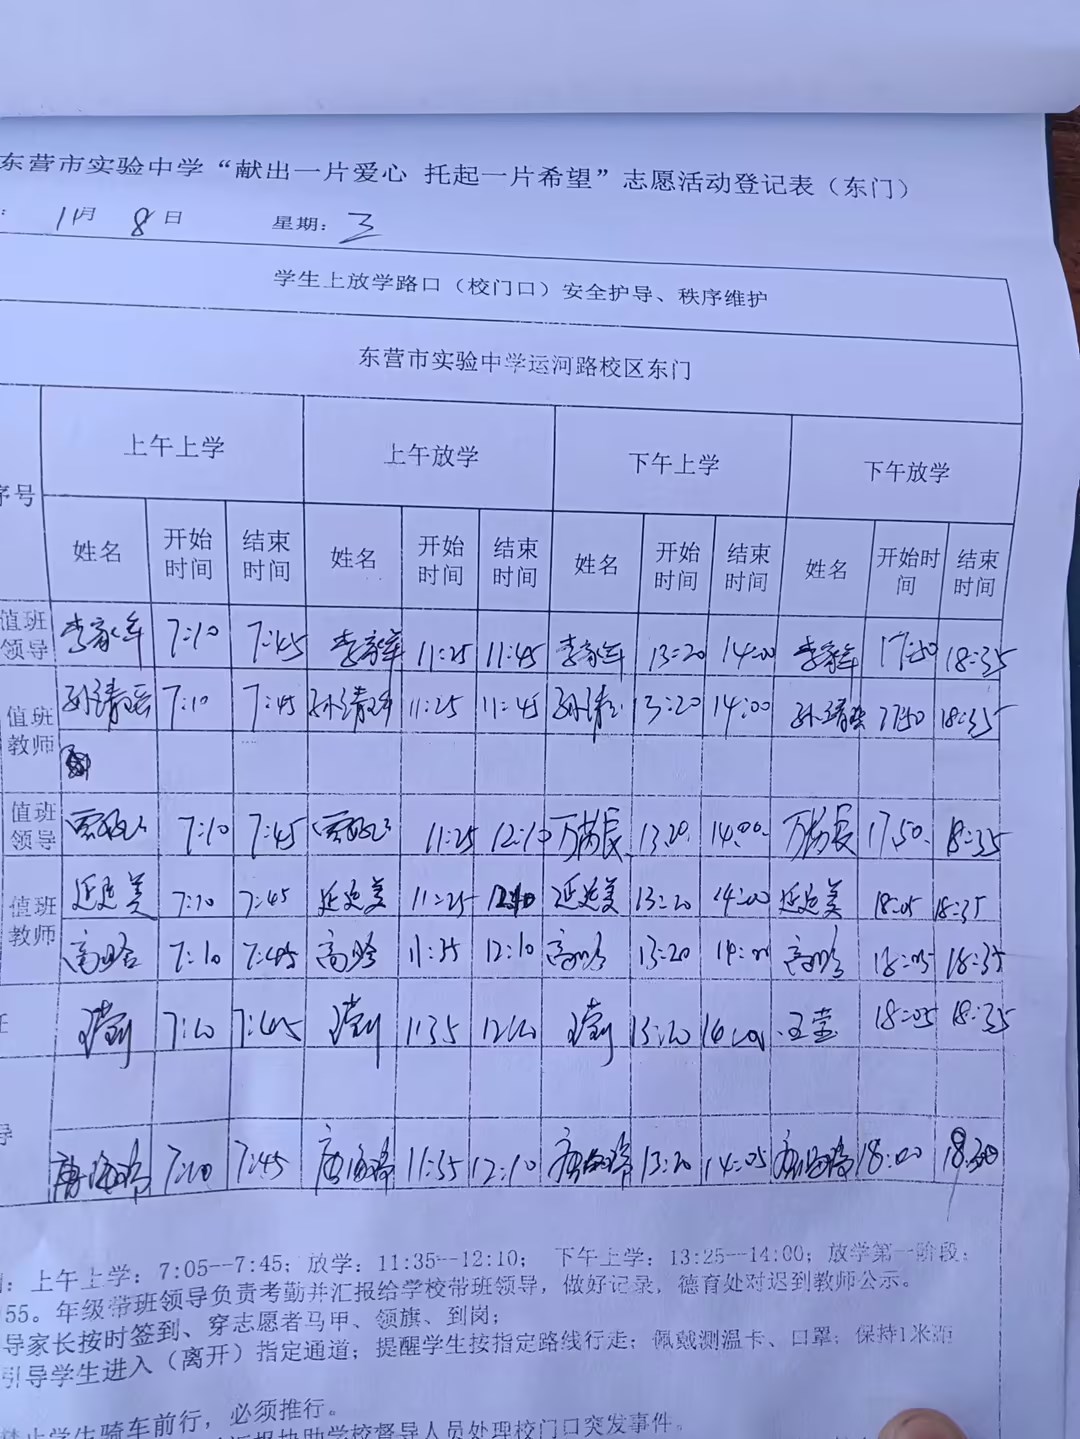 东营市实验中学“献出一片爱心 托起一片希望”志愿活动登记表（东门）
: 11月 8日 星期: 三
学生上放学路口（校门口）安全护导、秩序维护
东营市实验中学运河路校区东门
序号 上午上学 上午放学 下午上学 下午放学
姓名 开始时间 结束时间 姓名 开始时间 结束时间 姓名 开始时间 结束时间 姓名 开始时间 结束时间
值班领导 李家军 7:10 7:45 李家军 11:25 11:45 李家军 13:20 14:00 李家军 17:50 18:35
值班教师 7:10 7:45 11:25 11:45 13:20 14:00 17:50 18:35
值班领导 7:10 7:45 11:25 12:10 13:20 14:00 17:50 18:35
值班教师 延延美 7:10 7:45 延延美 11:25 12:10 延延美 13:20 14:00 延延美 18:05 18:35
7:10 7:45 11:35 12:10 13:20 14:00 18:05 18:35
王莹 7:10 7:45 王莹 11:35 12:10 王莹 13:20 14:00 王莹 18:05 18:35
导
7:10 7:45 11:35 12:10 13:20 14:05 18:00
: 上午上学: 7:05--7:45; 放学: 11:35--12:10; 下午上学: 13:25--14:00; 放学第一阶段:
55。年级带班领导负责考勤并汇报给学校带班领导，做好记录，德育处对迟到教师公示。
导家长按时签到、穿志愿者马甲、领旗、到岗;
引导学生进入（离开）指定通道; 提醒学生按指定路线行走; 佩戴测温卡、口罩; 保持1米距
禁止学生骑车前行，必须推行。
汇报协助学校督导人员处理校门口突发事件。